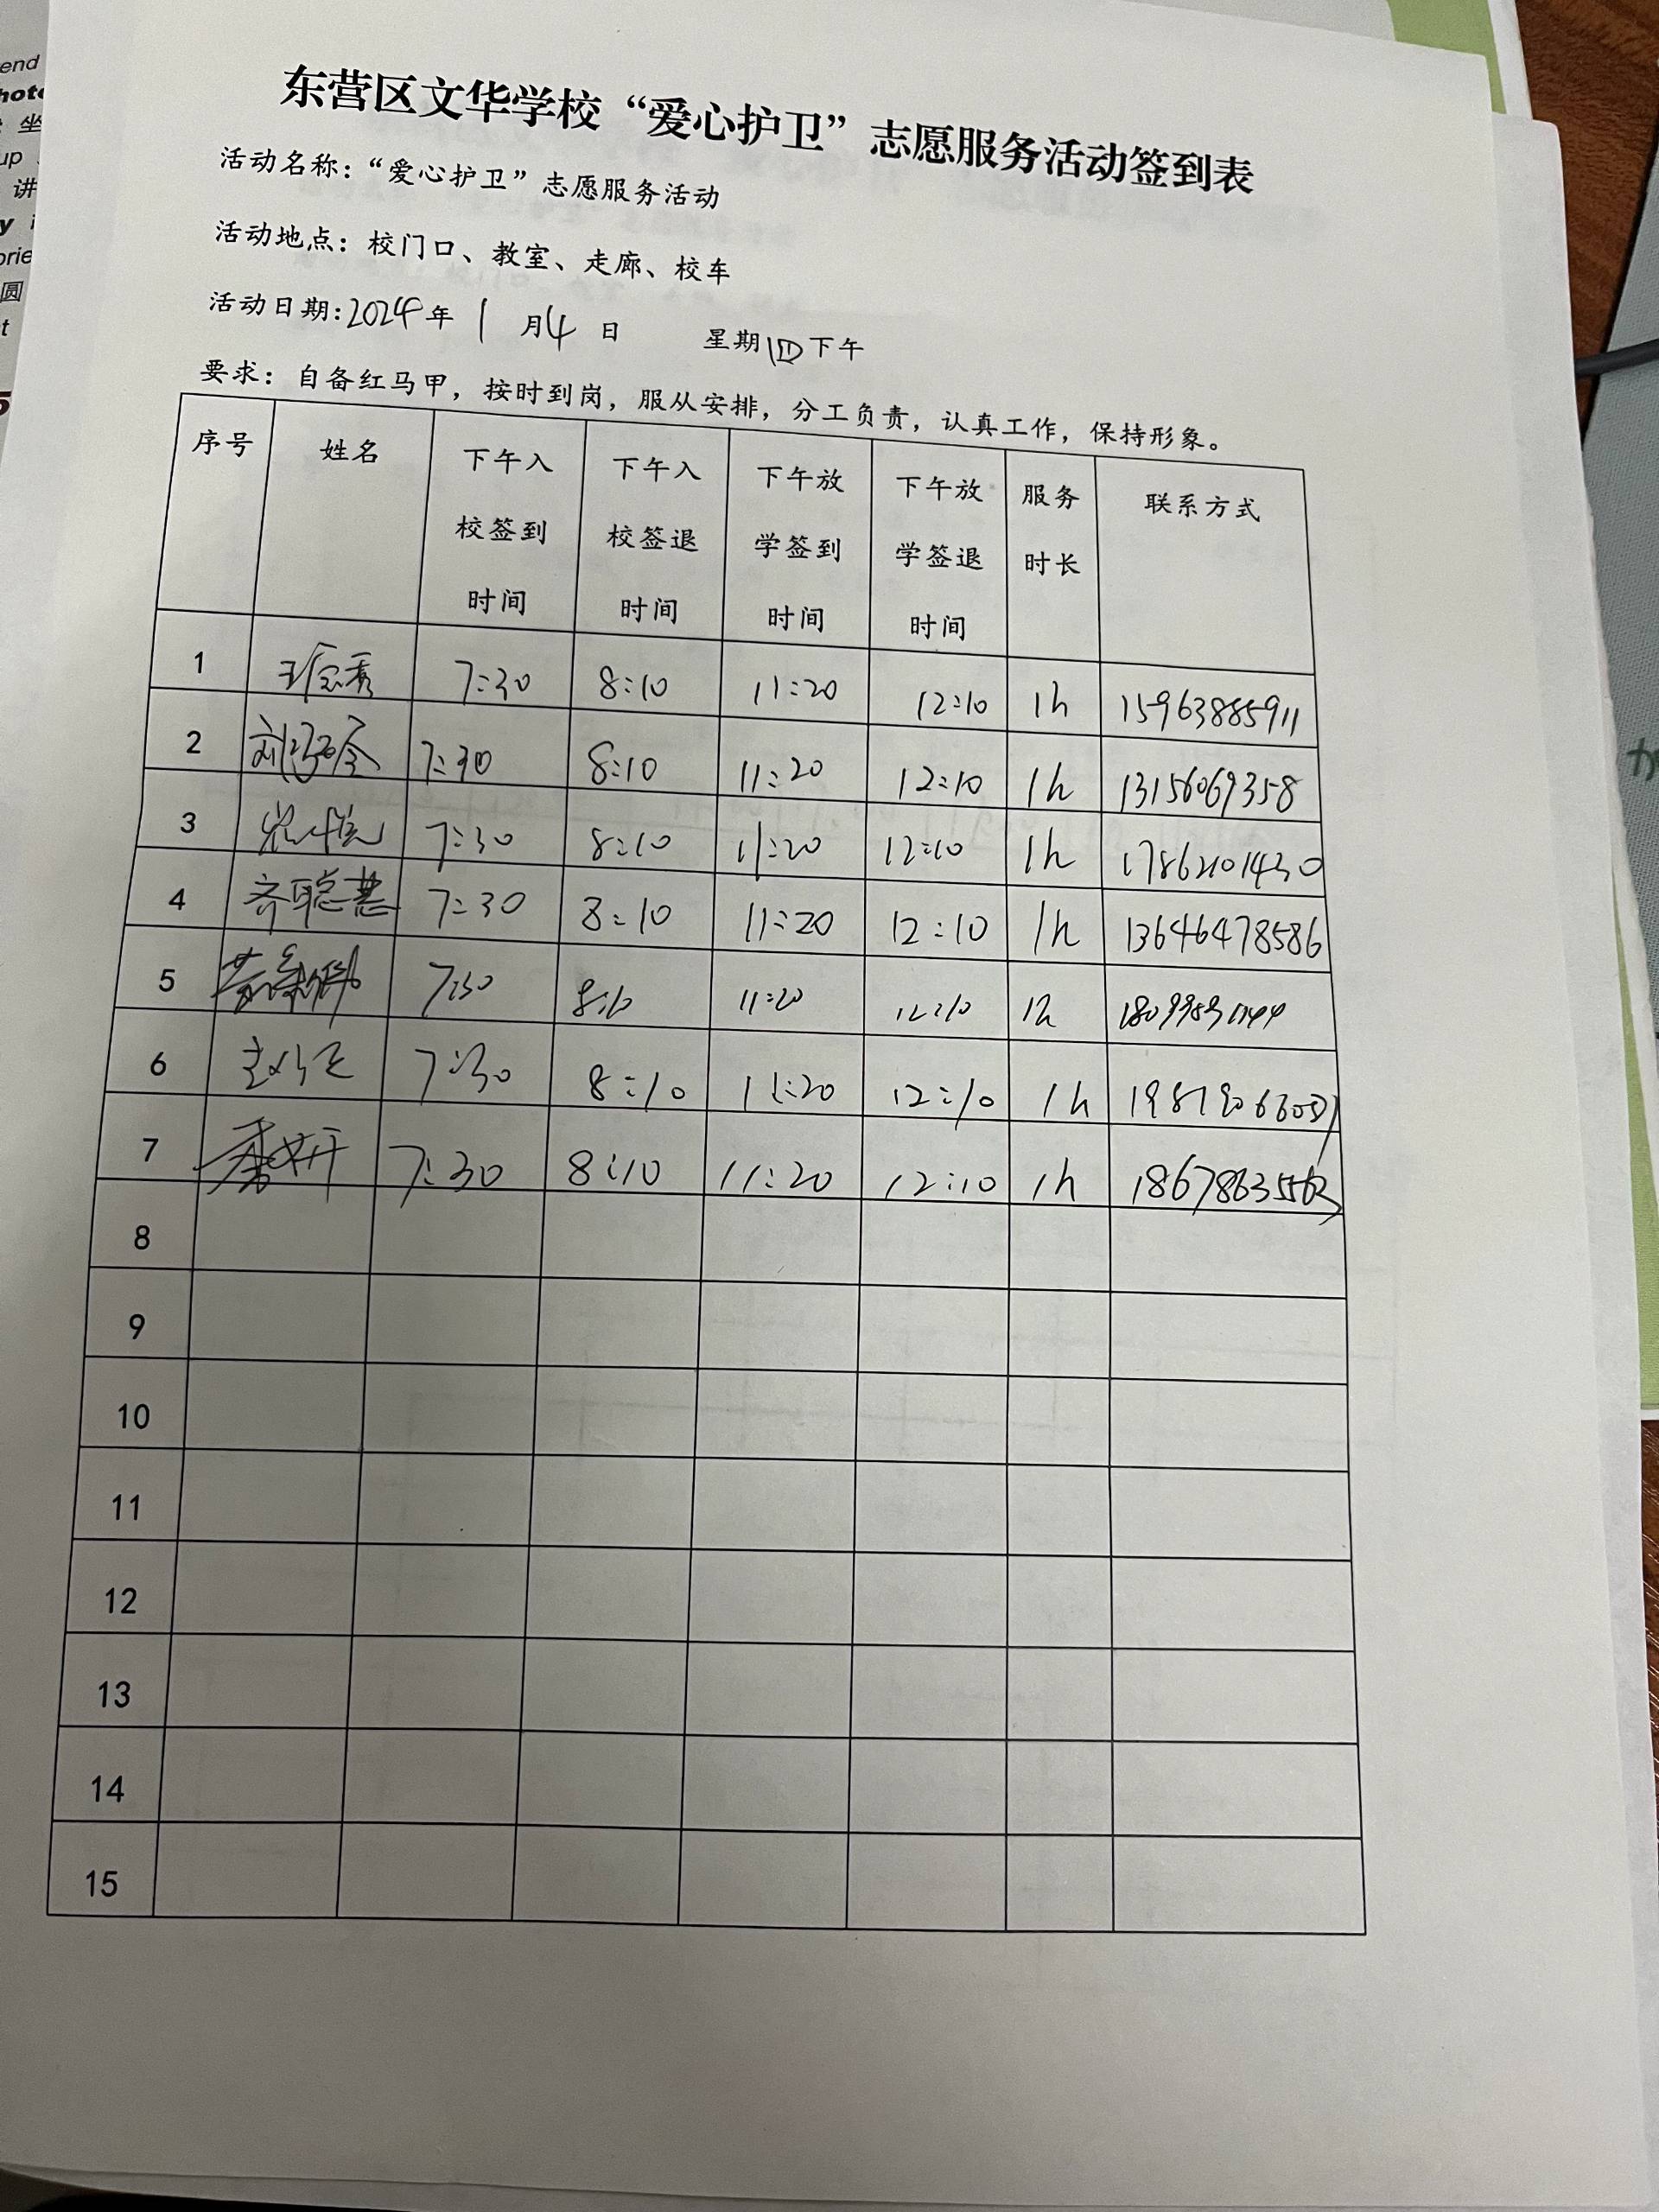 东营区文华学校“爱心护卫”志愿服务活动签到表
活动名称：“爱心护卫”志愿服务活动
活动地点：校门口、教室、走廊、校车
活动日期：2024年 1 月4 日 星期四下午
要求：自备红马甲，按时到岗，服从安排，分工负责，认真工作，保持形象。
序号 姓名 下午入校签到时间 下午入校签退时间 下午放学签到时间 下午放学签退时间 服务时长 联系方式
1 7:30 8:10 11:20 12:10 1h 15963885911
2 7:30 8:10 11:20 12:10 1h 13156069358
3 7:30 8:10 11:20 12:10 1h 17862101430
4 齐聪慧 7:30 8:10 11:20 12:10 1h 13646478586
5 7:30 8:10 11:20 12:10 1h
6 7:30 8:10 11:20 12:10 1h
7 7:30 8:10 11:20 12:10 1h 18678635562
8
9
10
11
12
13
14
15
end
坐
up
讲
y
圆
t